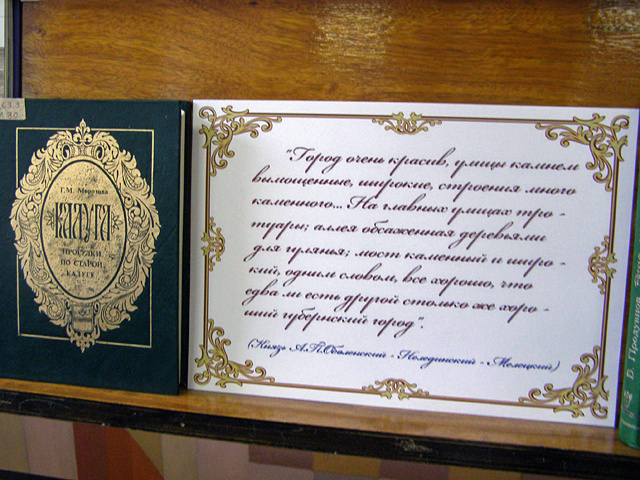 63.3
М 80
Г.М. Морозова
КАЛУГА
ПРОГУЛКИ
ПО СТАРОЙ
КАЛУГЕ
"Город очень красив, улицы камнем
вымощенные, широкие, строения много
каменного... На главных улицах тро -
туары; аллея обсаженная деревьями
для гулянья; мост каменный и широ -
кий, одним словом, все хорошо, что
едва ли есть другой столько же хоро -
ший губернский город".
(Князь А.П.Оболенский - Нелединский - Мелецкий)